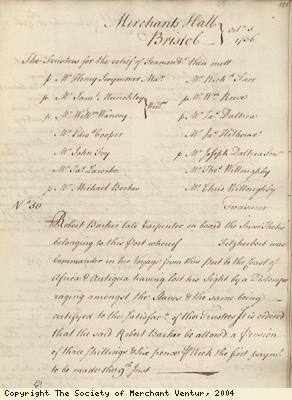 Merchants Hall
Bristol
Oct. 5
1756
The Trustees for the relief of Seamen &c. then mett
p Mr. Henry Swymmer Mar.
Mr. Richd. Farr
p Mr. Saml. Munckley
p Mr. Wm. Reeve
p Mr. Willm. Wansey
Wardns.
p Mr. Jas. Daltera
Mr. Edwd. Cooper
Mr. Jas. Hilhouse
Mr. John Foy
p Mr. Joseph Daltera Senr.
Mr. Jas. Laroche
Mr. Thos. Willoughby
p Mr. Michael Becher
Mr. Chris Willoughby
Treasurer
No. 50.
Robert Barker late Carpenter on board the Snow Thetis
belonging to this Port whereof Fitzherbert was
Commander in her Voyage from this Port to the Coast of
Africa & Antigua having lost his Sight by a Distemper
raging amongst the Slaves & the same being
certifyed to the Satisfacn. of the Trustees It is ordered
that the said Robert Barker be allowd a Pension
of three Shillings & Six pence P Week the first paymt.
to be made the 9th. Inst
Copyright The Society of Merchant Ventur, 2004